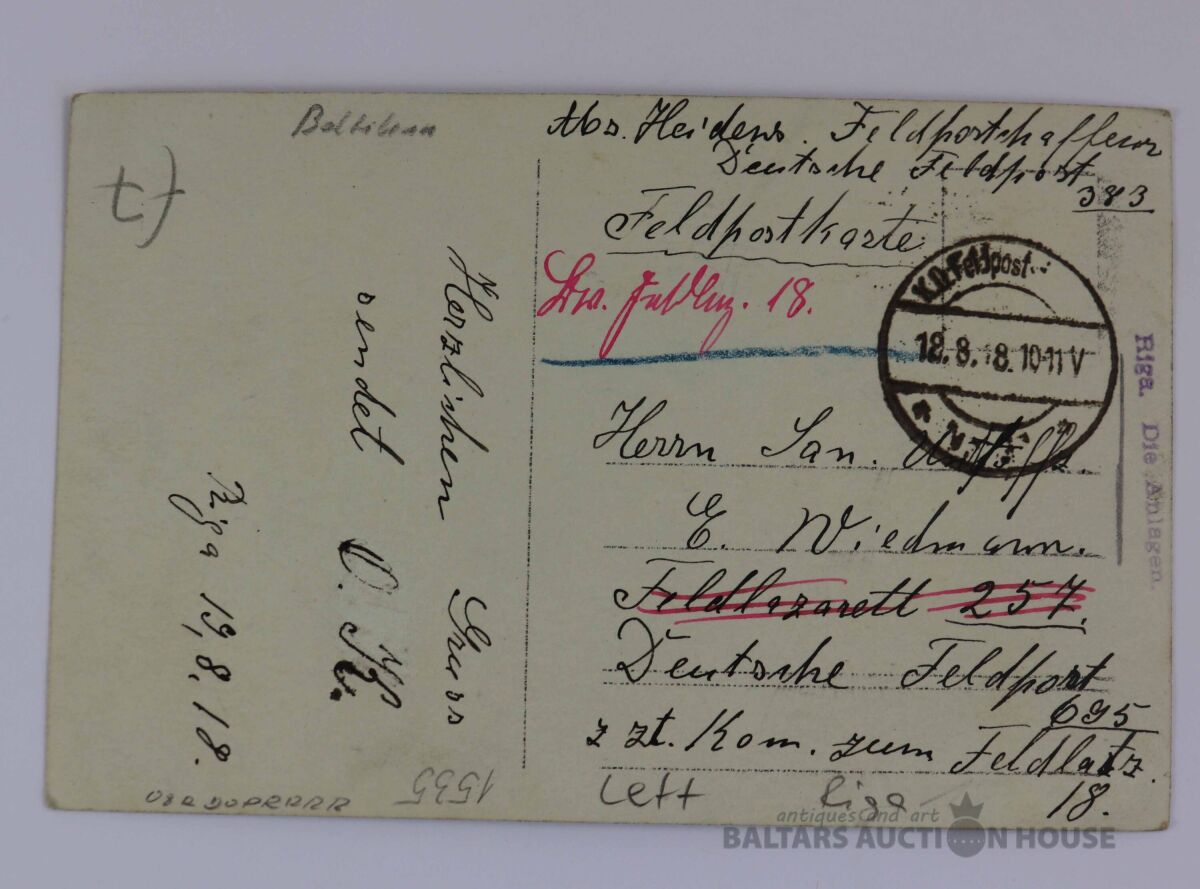 Abs. Heidens. Feldpostschaffner
Deutsche Feldpost
383
Feldpostkarte
18.
K.D. Feldpost
18.8.18. 10-11 V
Herrn San. Uffz.
E. Wiedmann.
Feldlazarett 257.
Deutsche Feldpost
695
z zt. Kom. zum Feldlatz.
18.
Herzlichen Gruss
sendet
Riga 19,8,18.
Riga. Die Anlagen.
1535
Lett Riga
antiques and art
BALTARS AUCTION HOUSE